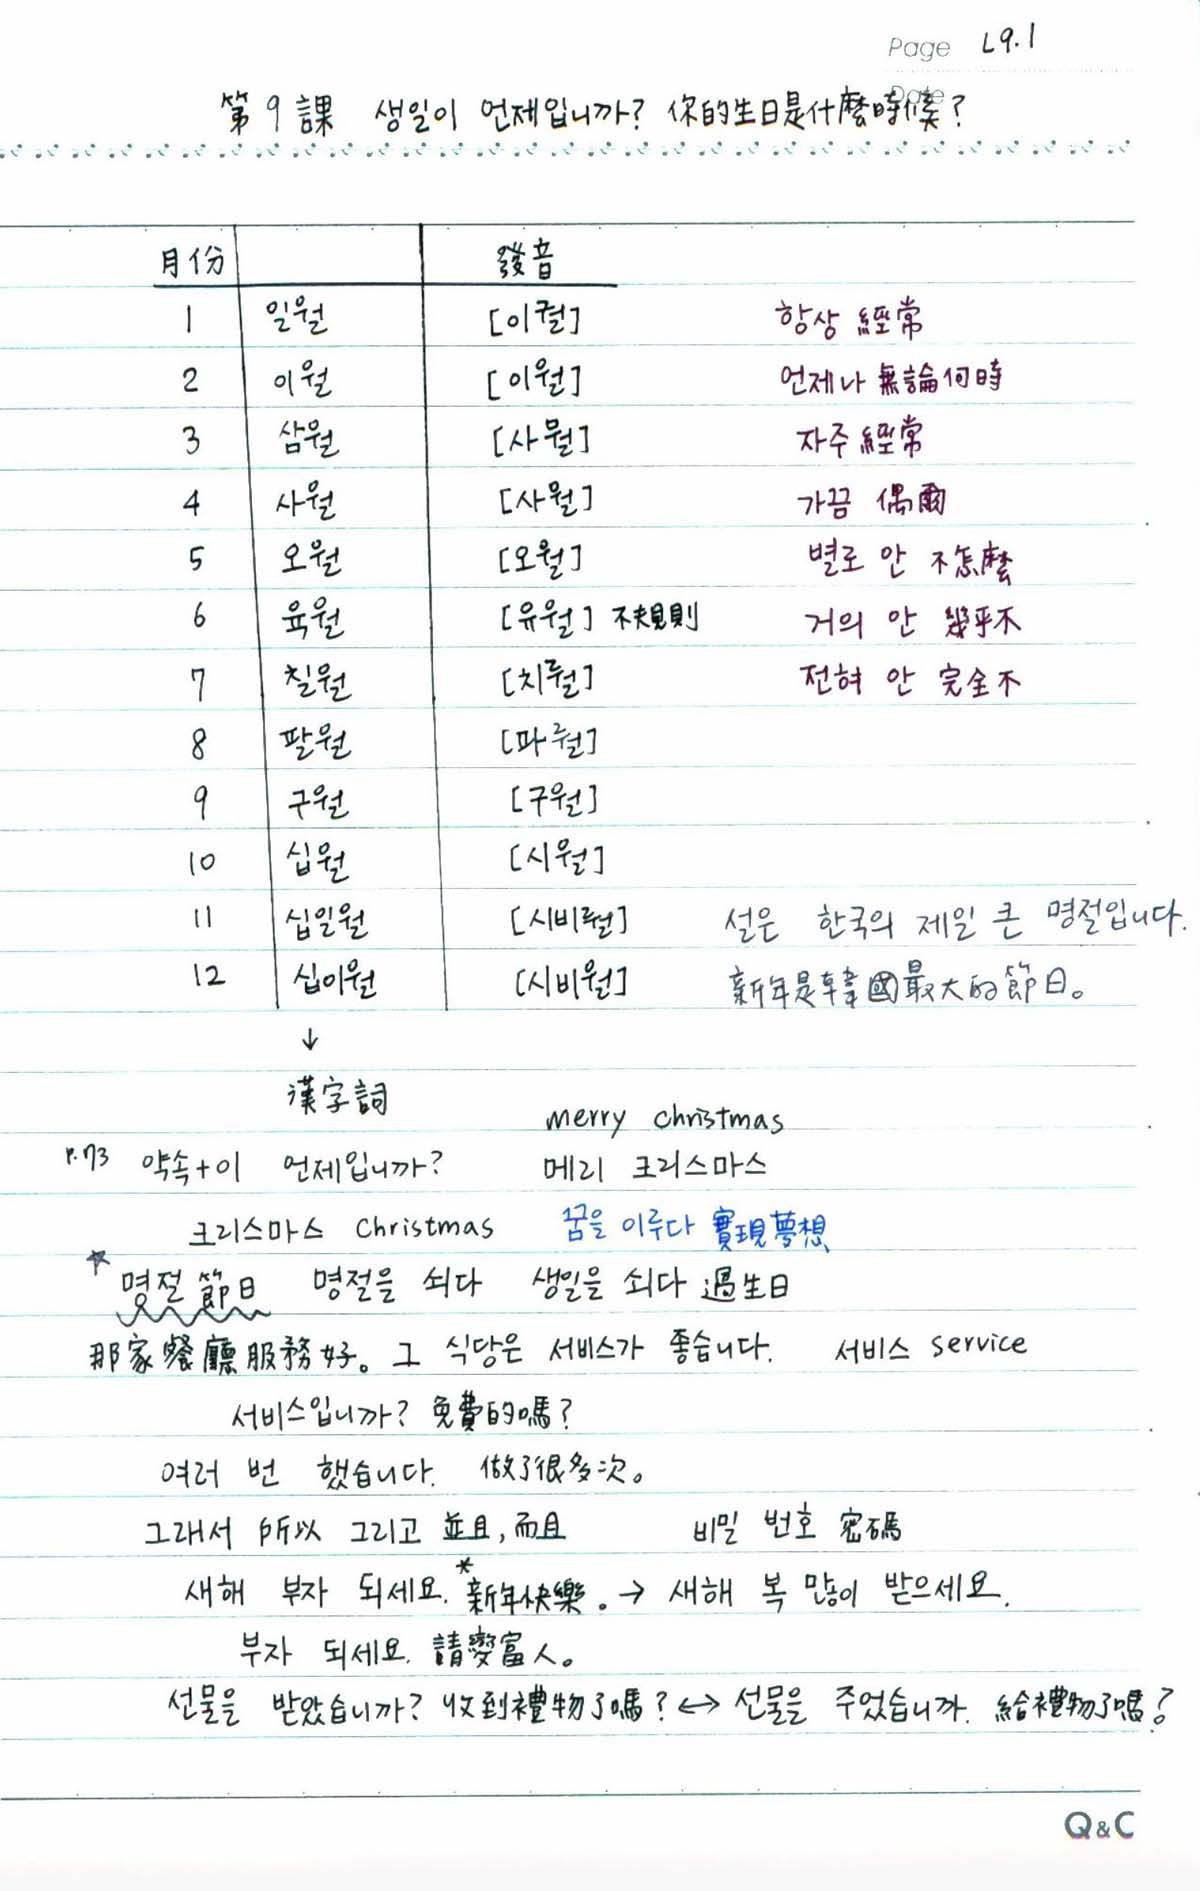 Page L9.1
Date
第9課 생일이 언제입니까? 你的生日是什麼時候?
月份 發音
1 일월 [이궐] 항상 經常
2 이월 [이월] 언제나 無論何時
3 삼월 [사뭘] 자주 經常
4 사월 [사월] 가끔 偶爾
5 오월 [오월] 별로 안 不怎麼
6 육월 [유월] 不規則 거의 안 幾乎不
7 칠월 [치뤌] 전혀 안 完全不
8 팔월 [파뤌]
9 구월 [구월]
10 십월 [시월]
11 십일월 [시비뤌] 설은 한국의 제일 큰 명절입니다.
12 십이월 [시비월] 新年是韓國最大的節日。
↓
漢字詞
merry christmas
P.73 약속+이 언제입니까? 메리 크리스마스
크리스마스 Christmas 꿈을 이루다 實現夢想
★ 명절 節日 명절을 쇠다 생일을 쇠다 過生日
那家餐廳服務好。그 식당은 서비스가 좋습니다. 서비스 service
서비스입니까? 免費的嗎?
여러 번 했습니다. 做了很多次。
그래서 所以 그리고 並且,而且 비밀 번호 密碼
새해 부자 되세요. *新年快樂。→ 새해 복 많이 받으세요.
부자 되세요. 請變富人。
선물을 받았습니까? 收到禮物了嗎? ↔ 선물을 주었습니까. 給禮物了嗎?
Q&C